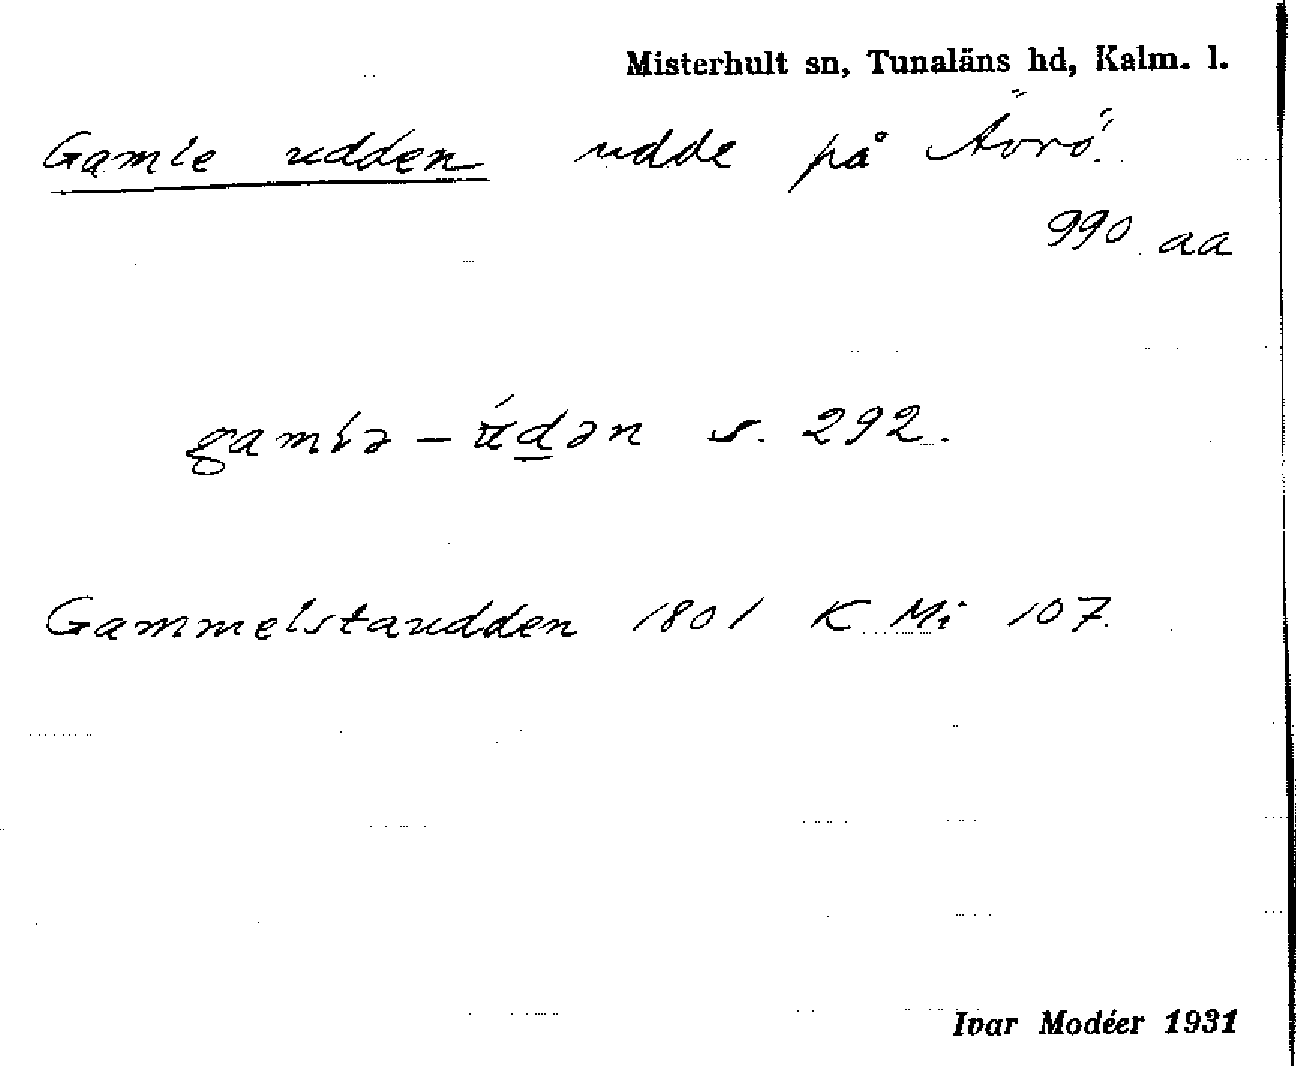 Misterhult sn, Tunaläns hd, Kalm. l.
Gamle udden udde på Ävrö.
990 aa
gamlə – údən s. 292.
Gammelstaudden 1801 K Mi 107.
Ivar Modéer 1931